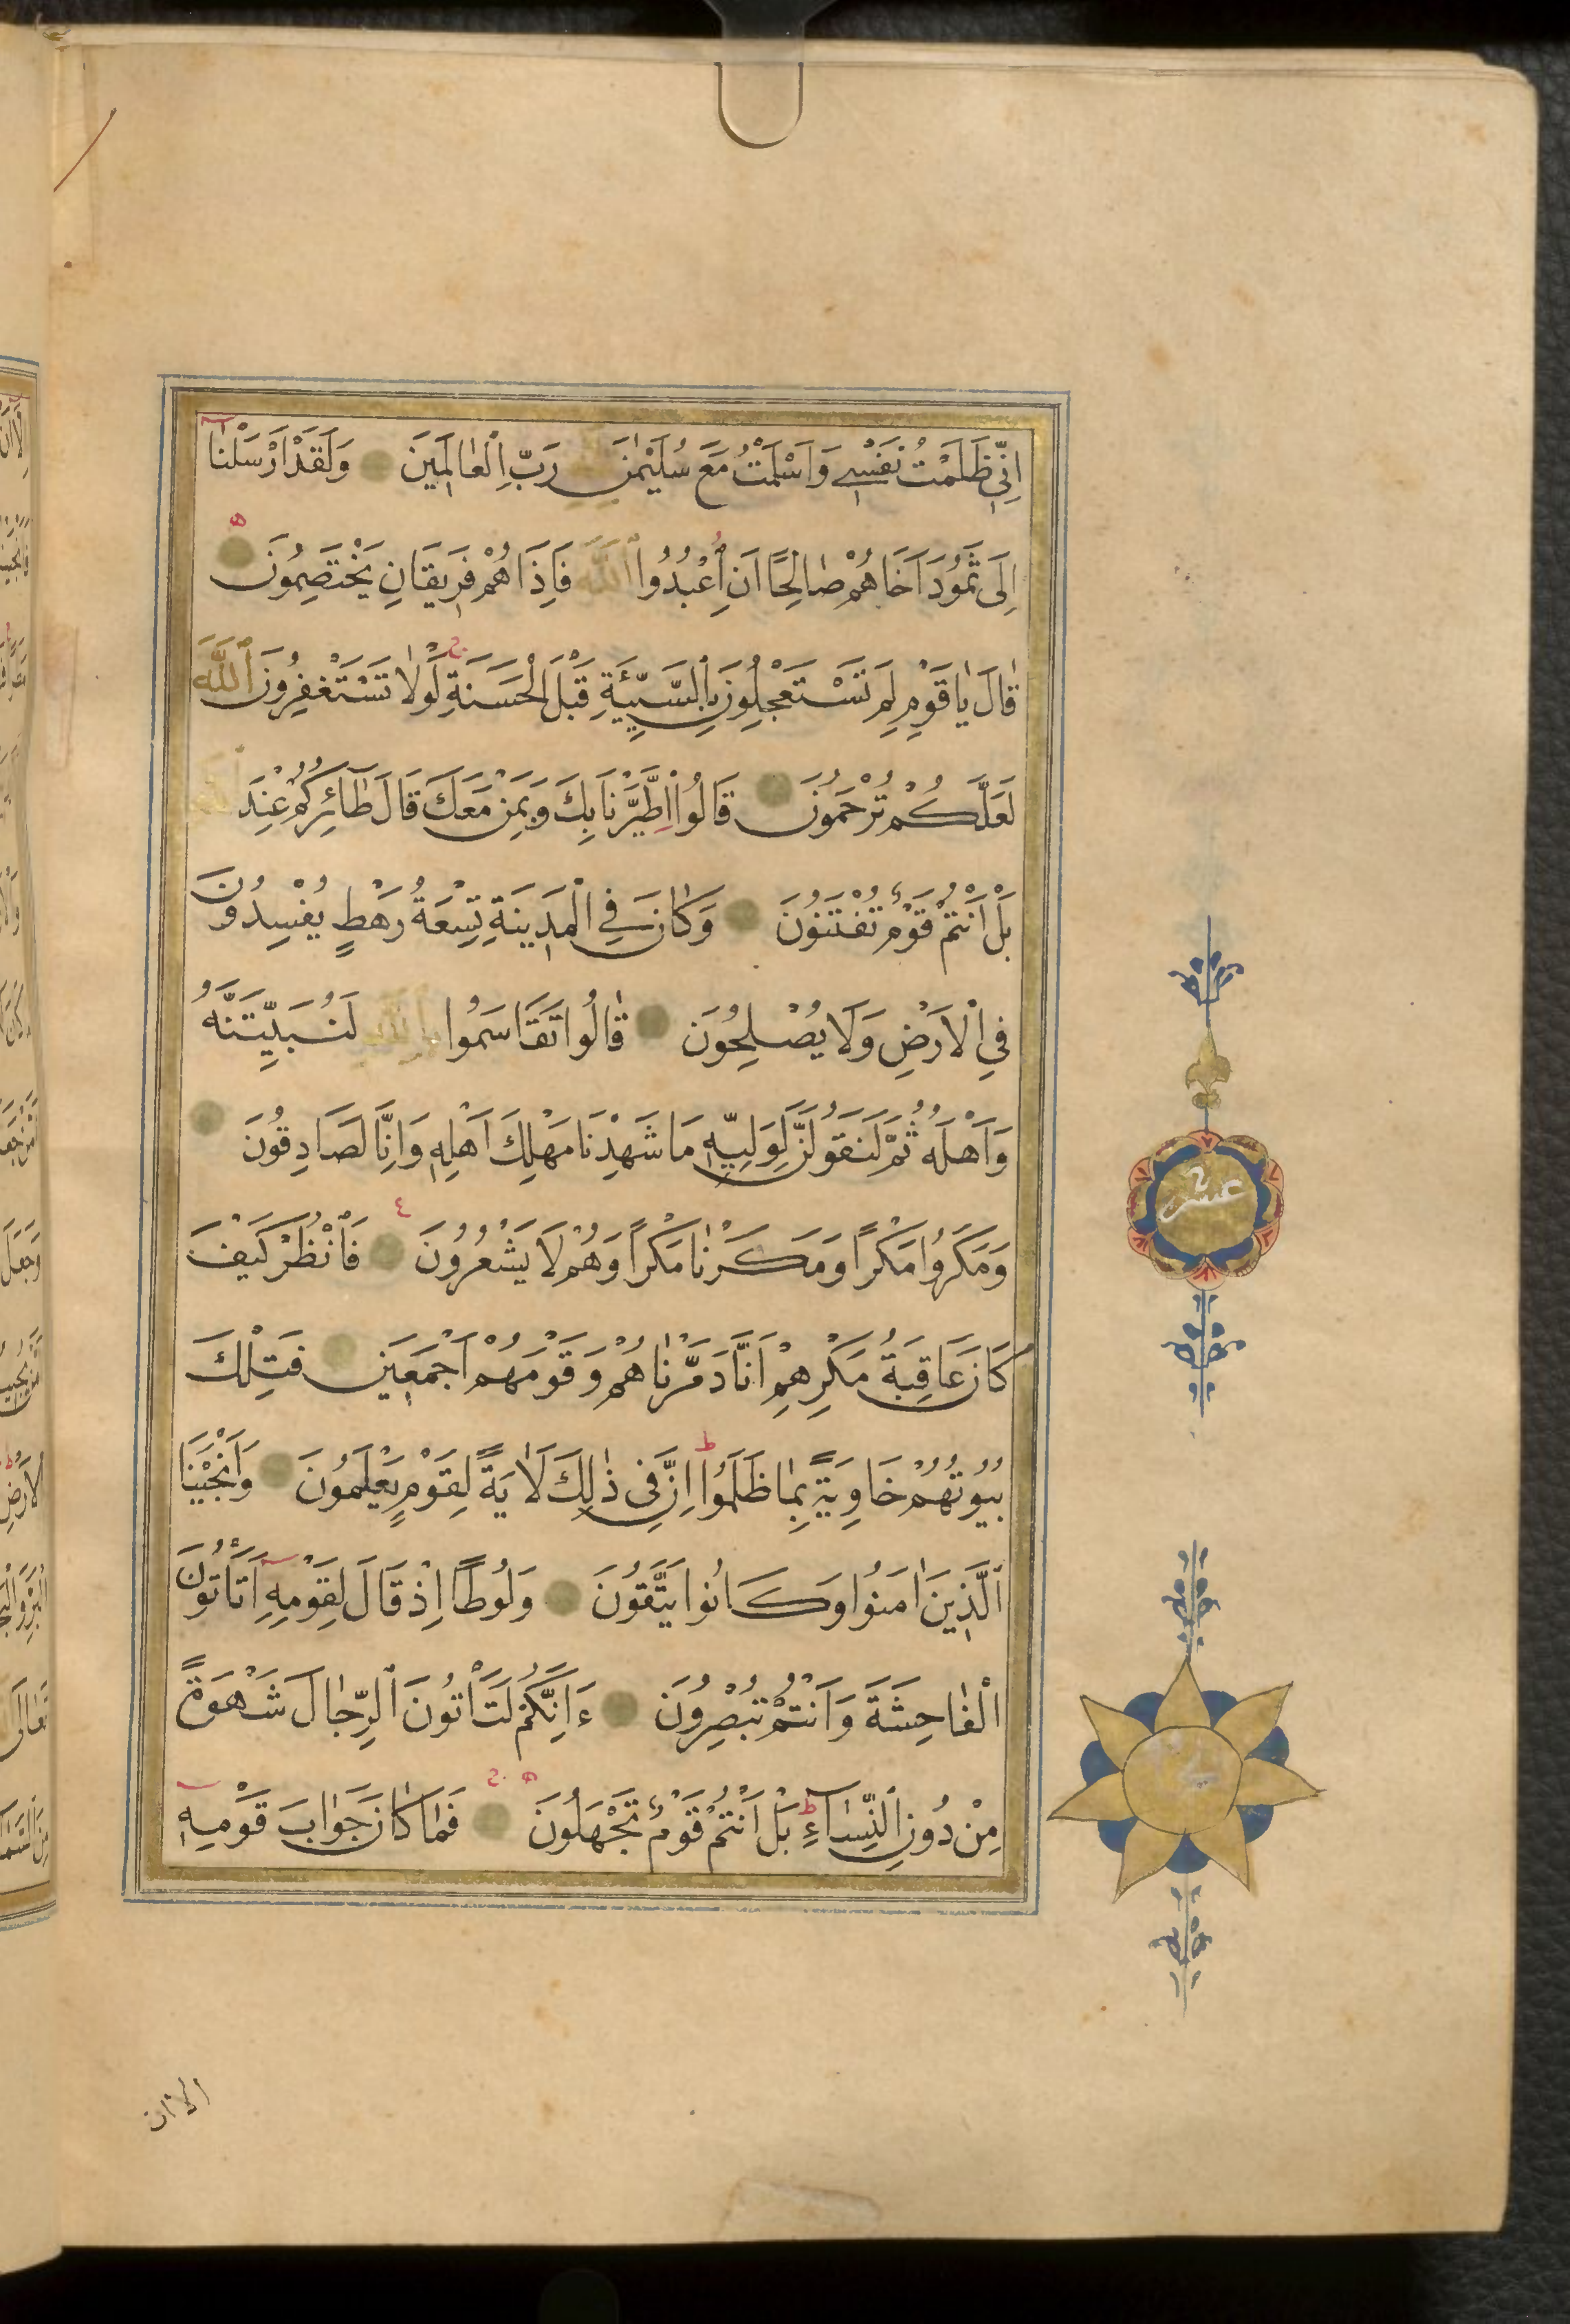 اِنِّى ظَلَمْتُ نَفْسِى وَاَسْلَمْتُ مَعَ سُلَيْمٰنَ رَبِّ الْعٰالَمِينَ وَلَقَدْ اَرْسَلْنٰا
اِلَى ثَمُودَ اَخَاهُمْ صٰالِحًا اَنِ اعْبُدُوا اللَّهَ فَاِذَا هُمْ فَرِيقَانِ يَخْتَصِمُونَ
قٰالَ يٰاقَوْمِ لِمَ تَسْتَعْجِلُونَ بِالسَّيِّئَةِ قَبْلَ الْحَسَنَةِ لَوْلٰا تَسْتَغْفِرُونَ اللَّهَ
لَعَلَّكُمْ تُرْحَمُونَ قَالُوا اطَّيَّرْنَا بِكَ وَبِمَنْ مَعَكَ قَالَ طٰٓائِرُكُمْ عِنْدَ اللَّهِ
بَلْ اَنْتُمْ قَوْمٌ تُفْتَنُونَ وَكٰانَ فِى الْمَدِينَةِ تِسْعَةُ رَهْطٍ يُفْسِدُونَ
فِى الْاَرْضِ وَلَا يُصْلِحُونَ قٰالُوا تَقَاسَمُوا بِاللَّهِ لَنُبَيِّتَنَّهُ
وَاَهْلَهُ ثُمَّ لَنَقُولَنَّ لِوَلِيِّهِ مَا شَهِدْنَا مَهْلِكَ اَهْلِهِ وَاِنَّا لَصَادِقُونَ
وَمَكَرُوا مَكْرًا وَمَكَرْنٰا مَكْرًا وَهُمْ لَا يَشْعُرُونَ فَانْظُرْ كَيْفَ
كَانَ عَاقِبَةُ مَكْرِهِمْ اَنَّا دَمَّرْنٰاهُمْ وَقَوْمَهُمْ اَجْمَعِينَ فَتِلْكَ
بُيُوتُهُمْ خَاوِيَةً بِمٰا ظَلَمُوا اِنَّ فِى ذٰلِكَ لَاٰيَةً لِقَوْمٍ يَعْلَمُونَ وَاَنْجَيْنَا
الَّذِينَ اٰمَنُوا وَكَانُوا يَتَّقُونَ وَلُوطًا اِذْ قَالَ لِقَوْمِهِ اَتَأْتُونَ
الْفٰاحِشَةَ وَاَنْتُمْ تُبْصِرُونَ ءَاِنَّكُمْ لَتَأْتُونَ الرِّجٰالَ شَهْوَةً
مِنْ دُونِ النِّسٰٓاءِ بَلْ اَنْتُمْ قَوْمٌ تَجْهَلُونَ فَمٰا كٰانَ جَوٰابَ قَوْمِهِ
عشر
الا ان